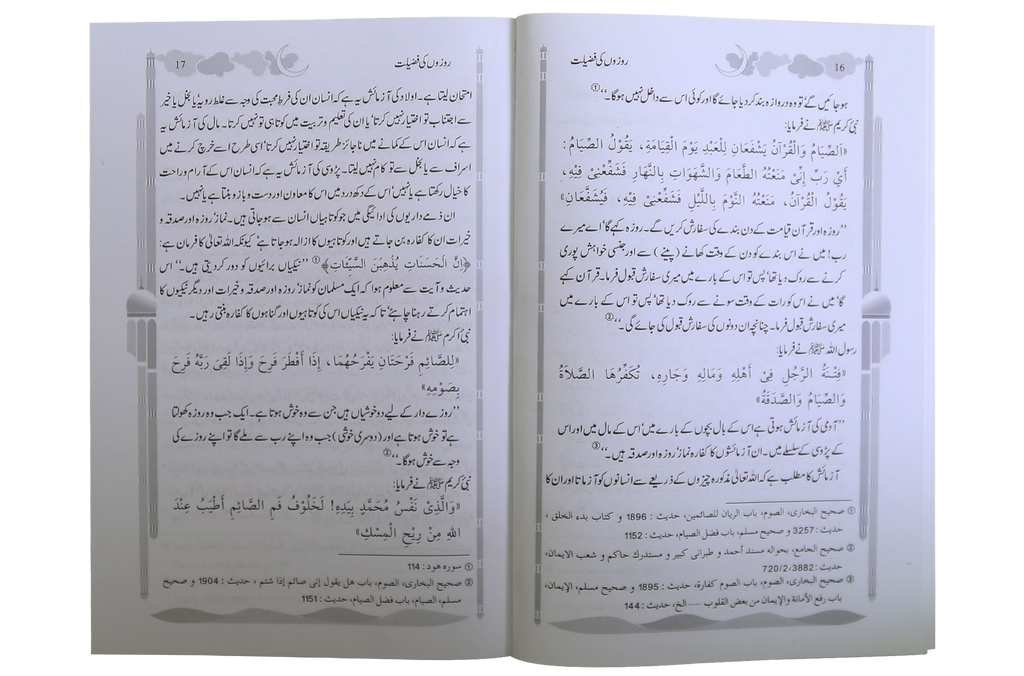 روزوں کی فضیلت
16
ہو جائیں گے تو وہ دروازہ بند کر دیا جائے گا اور کوئی اس سے داخل نہیں ہوگا۔‘‘①
نبیٔ کریم ﷺ نے فرمایا:
«اَلصِّيَامُ وَالْقُرْآنُ يَشْفَعَانِ لِلْعَبْدِ يَوْمَ الْقِيَامَةِ، يَقُولُ الصِّيَامُ:
أَيْ رَبِّ إِنِّي مَنَعْتُهُ الطَّعَامَ وَالشَّهَوَاتِ بِالنَّهَارِ فَشَفِّعْنِي فِيهِ،
يَقُولُ الْقُرْآنُ، مَنَعْتُهُ النَّوْمَ بِاللَّيْلِ فَشَفِّعْنِي فِيْهِ، فَيُشَفَّعَانِ»
’’روزہ اور قرآن قیامت کے دن بندے کی سفارش کریں گے۔ روزہ کہے گا‘ اے میرے
رب! میں نے اس بندے کو دن کے وقت کھانے (پینے) سے اور جنسی خواہش پوری
کرنے سے روک دیا تھا‘ پس تو اس کے بارے میں میری سفارش قبول فرما۔ قرآن کہے
گا‘ میں نے اس کو رات کے وقت سونے سے روک دیا تھا‘ پس تو اس کے بارے میں
میری سفارش قبول فرما۔ چنانچہ ان دونوں کی سفارش قبول کی جائے گی۔‘‘②
رسول اللہ ﷺ نے فرمایا:
«فِتْنَةُ الرَّجُلِ فِيْ أَهْلِهِ وَمَالِهِ وَجَارِهِ، تُكَفِّرُهَا الصَّلَاةُ
وَالصِّيَامُ وَالصَّدَقَةُ»
’’آدمی کی آزمائش ہوتی ہے اس کے بال بچوں کے بارے میں‘ اس کے مال میں اور اس
کے پڑوسی کے سلسلے میں۔ ان آزمائشوں کا کفارہ نماز‘ روزہ اور صدقہ ہیں۔‘‘③
آزمائش کا مطلب ہے کہ اللہ تعالیٰ مذکورہ چیزوں کے ذریعے سے انسانوں کو آزماتا اور ان کا
① صحیح البخاری، الصوم، باب الریان للصائمین، حدیث : 1896 و کتاب بدء الخلق ،
حدیث : 3257 و صحیح مسلم، باب فضل الصیام، حدیث : 1152
② صحیح الجامع، بحوالہ مسند أحمد و طبرانی کبیر و مستدرك حاکم و شعب الایمان،
حدیث : 3882، 720/2
③ صحیح البخاری، الصوم، باب الصوم کفارة، حدیث : 1895 و صحیح مسلم، الإیمان،
باب رفع الأمانة والإیمان من بعض القلوب ---- الخ، حدیث : 144
روزوں کی فضیلت
17
امتحان لیتا ہے۔ اولاد کی آزمائش یہ ہے کہ انسان ان کی فرط محبت کی وجہ سے غلط رویہ‘ یا بخل یا خیر
سے اجتناب تو اختیار نہیں کرتا‘ یا ان کی تعلیم و تربیت میں کوتاہی تو نہیں کرتا۔ مال کی آزمائش یہ
ہے کہ انسان اس کے کمانے میں ناجائز طریقہ تو اختیار نہیں کرتا‘ اسی طرح اسے خرچ کرنے میں
اسراف سے یا بخل سے تو کام نہیں لیتا۔ پڑوسی کی آزمائش یہ ہے کہ انسان اس کے آرام و راحت
کا خیال رکھتا ہے یا نہیں‘ اس کے دکھ درد میں اس کا معاون اور دست و بازو بنتا ہے یا نہیں۔
ان ذمے داریوں کی ادائیگی میں جو کوتاہیاں انسان سے ہو جاتی ہیں۔ نماز‘ روزہ اور صدقہ و
خیرات ان کا کفارہ بن جاتے ہیں اور کوتاہیوں کا ازالہ ہو جاتا ہے‘ کیونکہ اللہ تعالیٰ کا فرمان ہے:
﴿إِنَّ الْحَسَنَاتِ يُذْهِبْنَ السَّيِّئَاتِ﴾① ’’نیکیاں برائیوں کو دور کر دیتی ہیں۔‘‘ اس
حدیث و آیت سے معلوم ہوا کہ ایک مسلمان کو نماز‘ روزہ اور صدقہ و خیرات اور دیگر نیکیوں کا
اہتمام کرتے رہنا چاہیے‘ تاکہ یہ نیکیاں اس کی کوتاہیوں اور گناہوں کا کفارہ بنتی رہیں۔
نبیٔ اکرم ﷺ نے فرمایا:
«لِلصَّائِمِ فَرْحَتَانِ يَفْرَحُهُمَا، إِذَا أَفْطَرَ فَرِحَ وَإِذَا لَقِيَ رَبَّهُ فَرِحَ
بِصَوْمِهِ»
’’روزے دار کے لیے دو خوشیاں ہیں جن سے وہ خوش ہوتا ہے۔ ایک جب وہ روزہ کھولتا
ہے تو خوش ہوتا ہے اور (دوسری خوشی) جب وہ اپنے رب سے ملے گا تو اپنے روزے کی
وجہ سے خوش ہوگا۔‘‘②
نبیٔ کریم ﷺ نے فرمایا:
«وَالَّذِيْ نَفْسُ مُحَمَّدٍ بِيَدِهِ! لَخُلُوْفُ فَمِ الصَّائِمِ أَطْيَبُ عِنْدَ
اللهِ مِنْ رِيْحِ الْمِسْكِ»
① سورہ ھود : 114
② صحیح البخاری، الصوم، باب هل یقول إنی صائم إذا شتم ، حدیث : 1904 و صحیح
مسلم، الصیام، باب فضل الصیام، حدیث : 1151